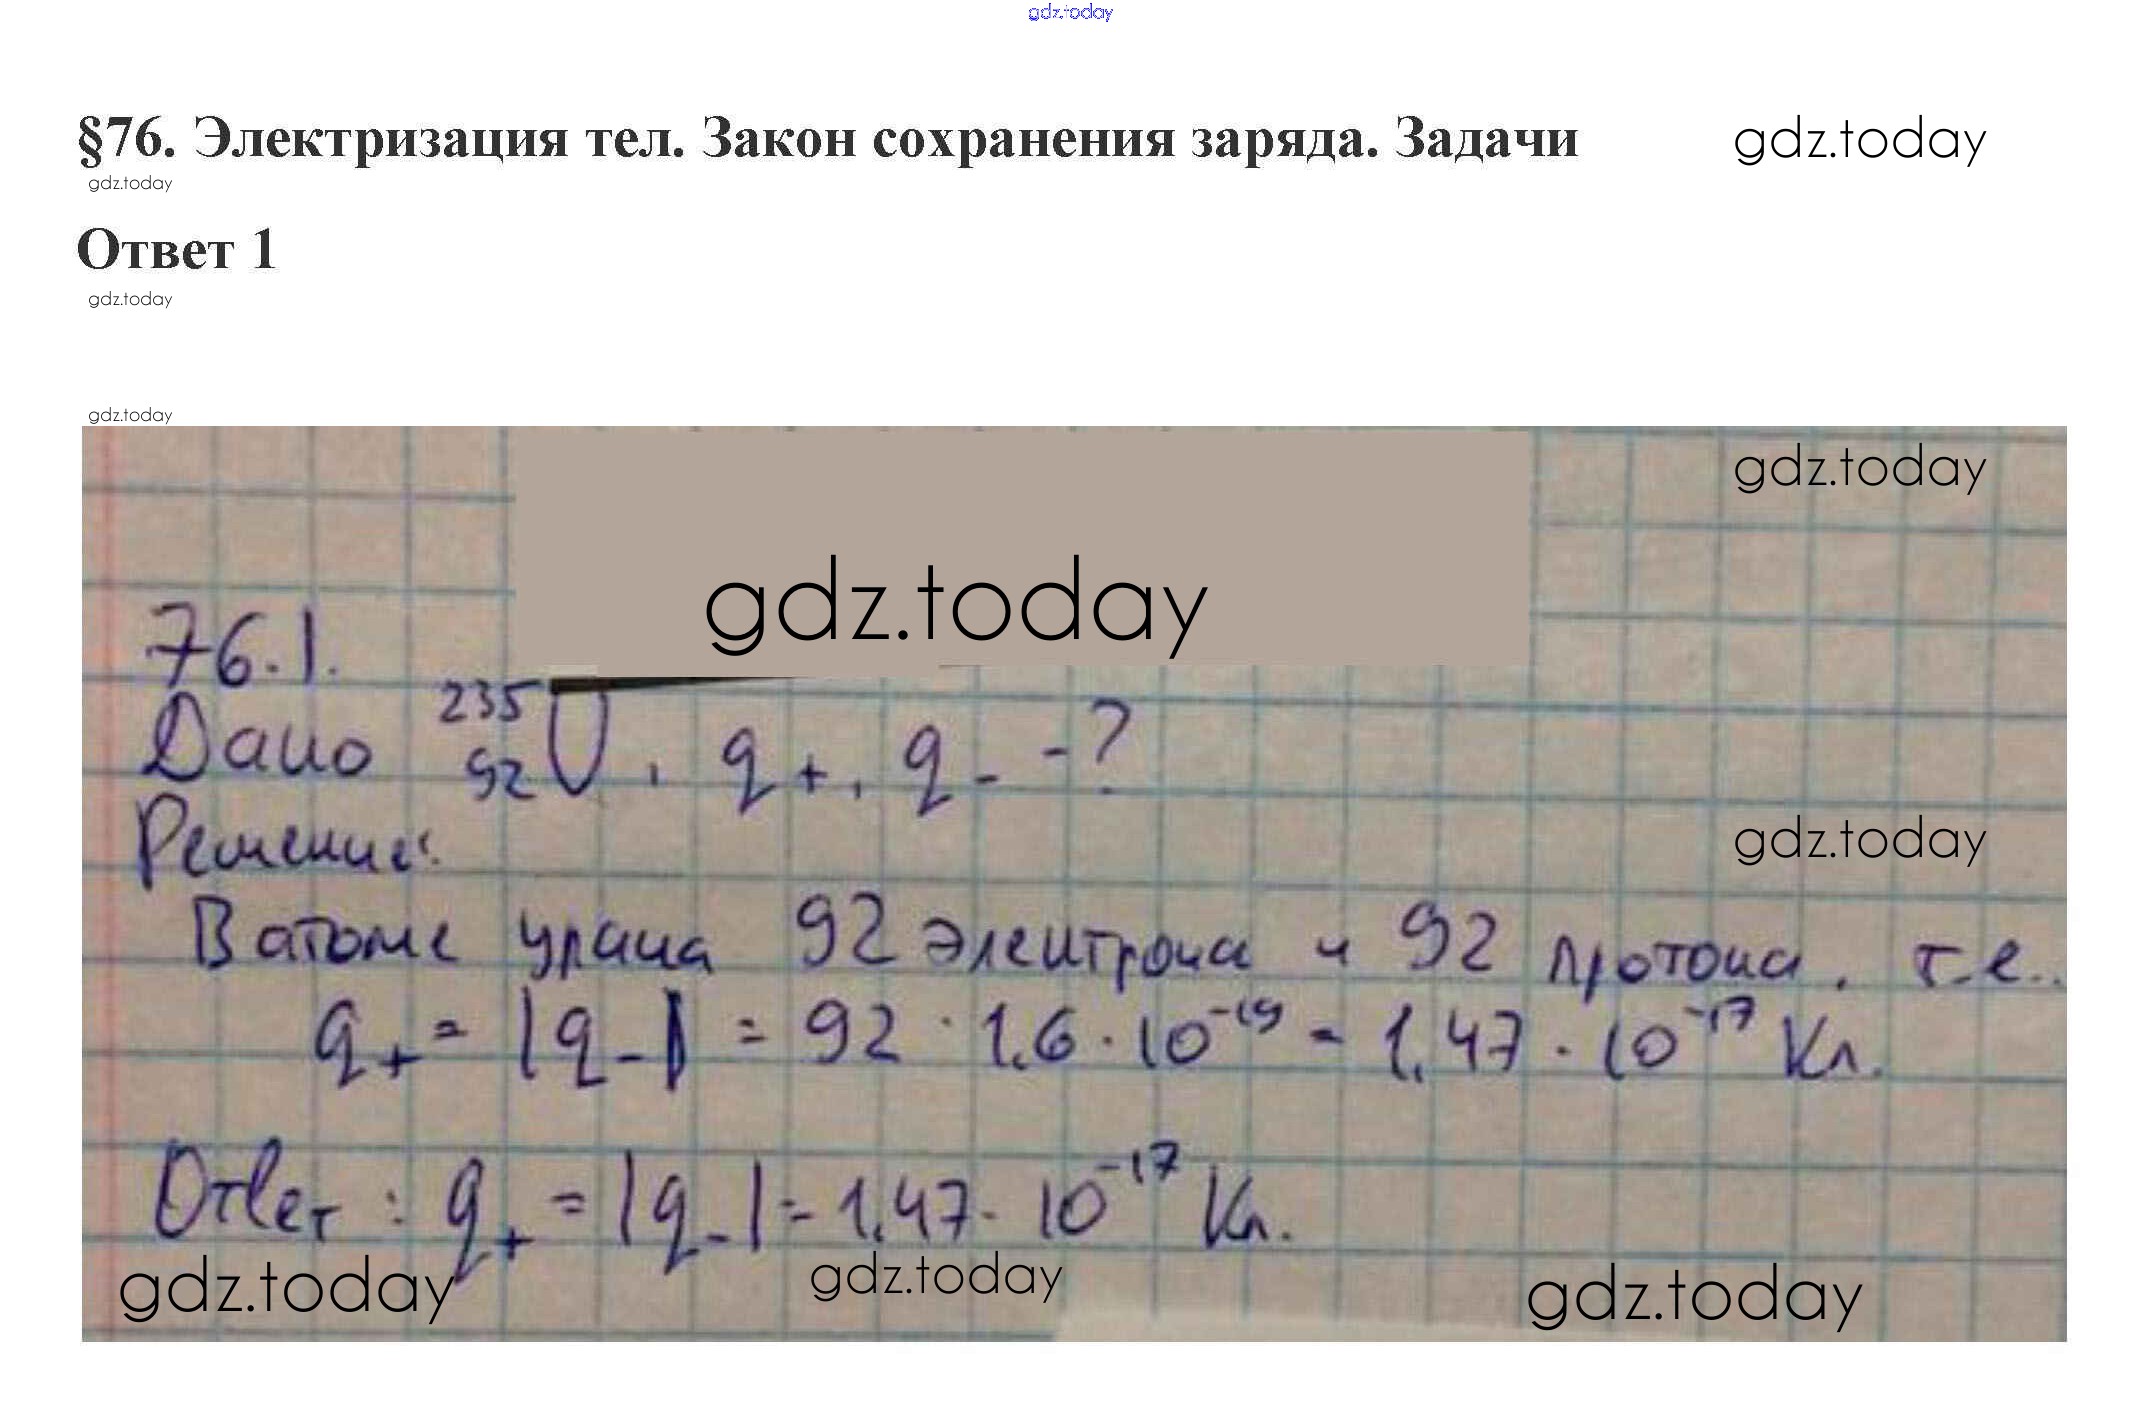 gdz.today
§76. Электризация тел. Закон сохранения заряда. Задачи gdz.today
gdz.today
Ответ 1
gdz.today
gdz.today
gdz.today
gdz.today
76.1.
Дано ²³⁵₉₂U, q₊, q₋ -?
Решение:
gdz.today
В атоме урана 92 электрона и 92 протона, т.е.
q₊ = |q₋| = 92 · 1,6 · 10⁻¹⁹ = 1,47 · 10⁻¹⁷ Кл.
Ответ: q₊ = |q₋| = 1,47 · 10⁻¹⁷ Кл.
gdz.today gdz.today gdz.today